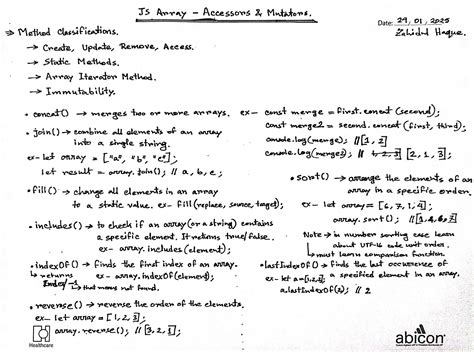 Js Array - Accessors & Mutators.
Date: 29, 01, 2025
Zahidul Haque.
⇒ Method Classifications.
→ Create, Update, Remove, Access.
→ Static Methods.
→ Array Iterator Method.
→ Immutability.
• concat() → merges two or more arrays. ex- const merge = first.concat (second);
const merge2 = second.concat (first, third);
console.log(merge); // [1, 2]
console.log(merge2); // [2, 1, 3];
• join() → combine all elements of an array
into a single string.
ex- let array = ["a", "b", "c"];
let result = array.join(); // a, b, c;
• sort() → arrange the elements of an
array in a specific order.
ex- let array = [6, 7, 1, 4];
array.sort(); // [1, 4, 6, 7]
Note → in number sorting case learn
about UTF-16 code unit order.
↳ must learn comparison function
• fill() → change all elements in an array
to a static value. ex- fill(replace, source, target);
• includes() → to check if an array (or a string) contains
a specific element. It returns true/false.
ex- array.includes(element);
• indexOf() → finds the first index of an array.
↳ returns ex- array.indexOf(element);
Index/-1
↳ that means not found.
• lastIndexOf() → finds the last occurrence of
a specified element in an array.
ex- let a=[1,2,2];
a.lastIndexOf(2); // 2
• reverse() → reverse the order of the elements.
ex- let array = [1, 2, 3];
array.reverse(); // [3, 2, 1];
Healthcare
abicon